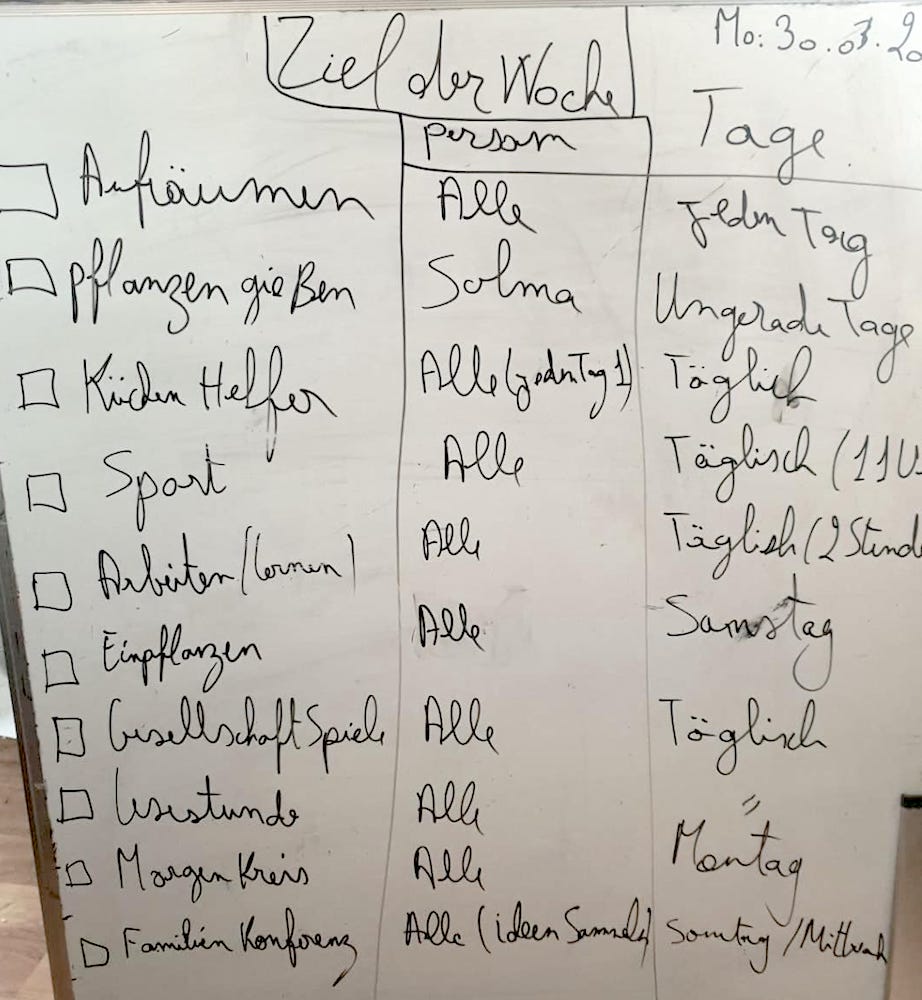 Ziel der Woche
Mo: 30.03.20
person Tage
Aufräumen Alle Jeden Tag
pflanzen gießen Solma Ungerade Tage
Küchen Helfer Alle (jeden Tag 1) Täglich
Sport Alle Täglisch (11U
Arbeiten/(lernen) Alle Täglish (2 Stunde
Einpflanzen Alle Samstag
GesellschaftSpiele Alle Täglisch
Lesestunde Alle "
Morgen Kreis Alle Montag
Familien Konferenz Alle (ideen Sammeln) Sonntag /Mittwoch